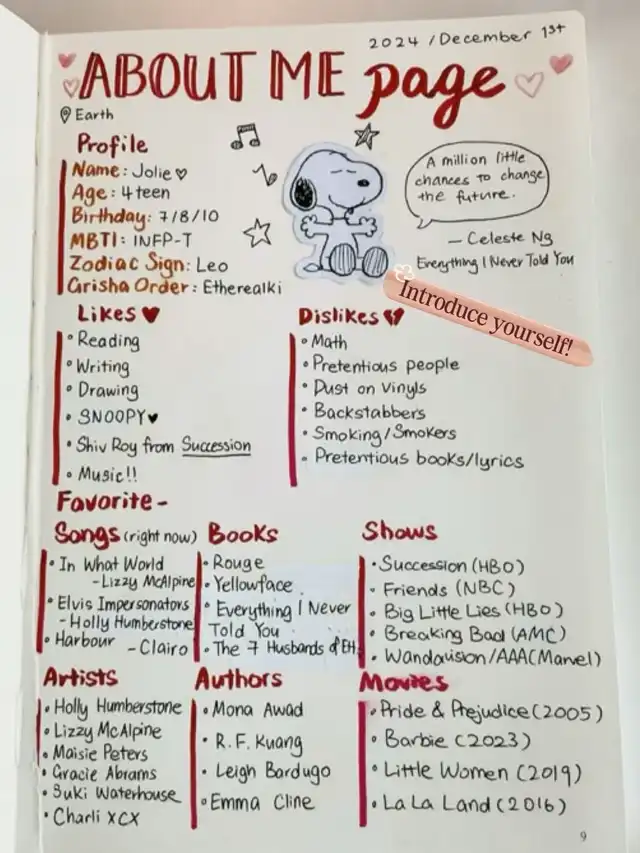 2024 /December 1st
ABOUT ME page
Earth
Profile
Name: Jolie
Age: 4teen
Birthday: 7/8/10
MBTI: INFP-T
Zodiac Sign: Leo
Grisha Order: Etherealki
A million little
chances to change
the future.
— Celeste Ng
Everything I Never Told You
Introduce yourself!
Likes
• Reading
• Writing
• Drawing
• SNOOPY
• Shiv Roy from Succession
• Music!!
Dislikes
• Math
• Pretentious people
• Dust on Vinyls
• Backstabbers
• Smoking/Smokers
• Pretentious books/lyrics
Favorite-
Songs (right now)
• In What World
-Lizzy McAlpine
• Elvis Impersonators
- Holly Humberstone
• Harbour
- Clairo
Books
• Rouge
• Yellowface
• Everything I Never
Told You
• The 7 Husbands of EH
Shows
• Succession (HBO)
• Friends (NBC)
• Big Little Lies (HBO)
• Breaking Bad (AMC)
• Wandavision/AAA(Marvel)
Artists
• Holly Humberstone
• Lizzy McAlpine
• Maisie Peters
• Gracie Abrams
• Suki Waterhouse
• Charli XCX
Authors
• Mona Awad
• R.F. Kuang
• Leigh Bardugo
• Emma Cline
Movies
• Pride & Prejudice (2005)
• Barbie (2023)
• Little Women (2019)
• La La Land (2016)
9